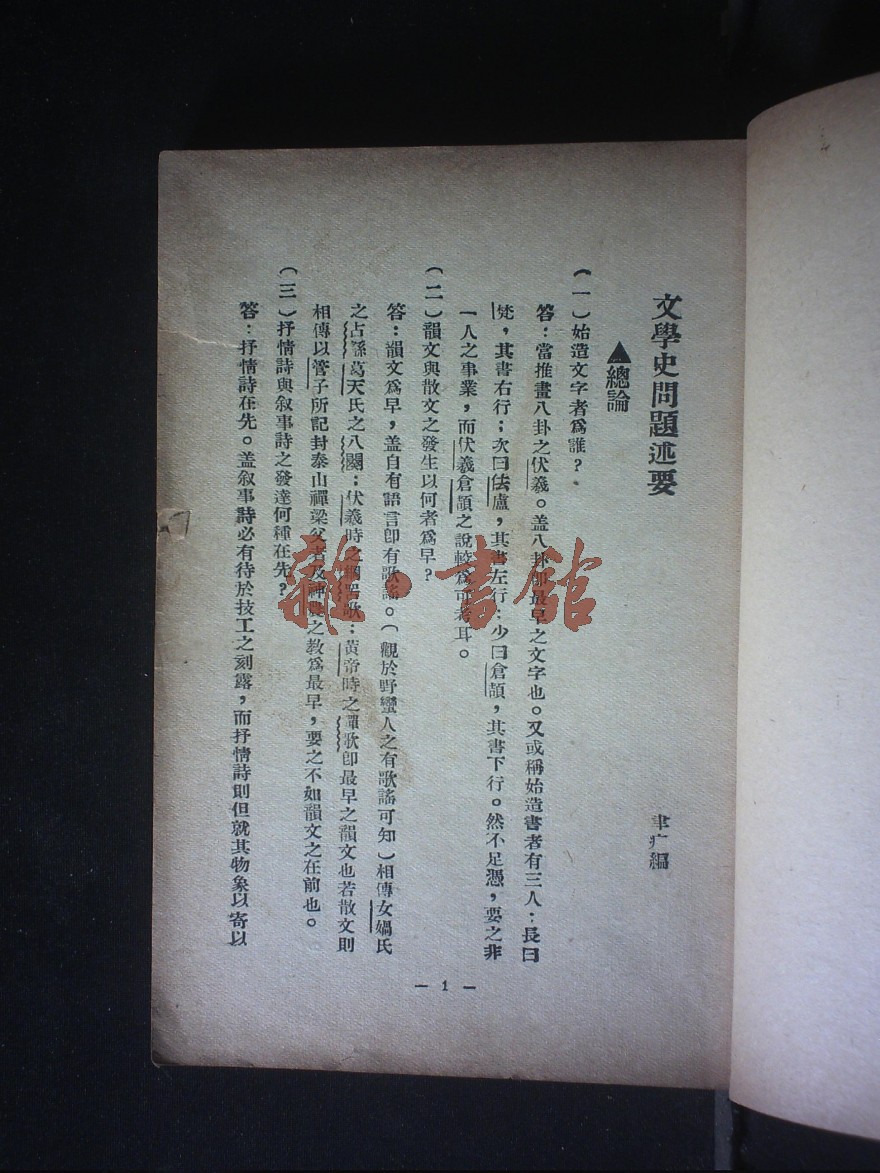 文學史問題述要
聿疒編
▲總論
(一)始造文字者爲誰?
答:當推畫八卦之伏羲。盖八卦卽最早之文字也。又或稱始造書者有三人:長曰
梵,其書右行;次曰佉盧,其書左行:少曰倉頡,其書下行。然不足憑,要之非
一人之事業,而伏羲倉頡之說較爲可考耳。
(二)韻文與散文之發生以何者爲早?
答:韻文爲早,盖自有語言卽有歌謠。(觀於野蠻人之有歌謠可知)相傳女媧氏
之占繇葛天氏之八闋;伏羲時之網罟歌:黃帝時之彈歌卽最早之韻文也若散文則
相傳以管子所記封泰山禪梁父者及神農之教爲最早,要之不如韻文之在前也。
(三)抒情詩與叙事詩之發達何種在先?
答:抒情詩在先。盖叙事詩必有待於技工之刻露,而抒情詩則但就其物象以寄以
— 1 —
雜·書館